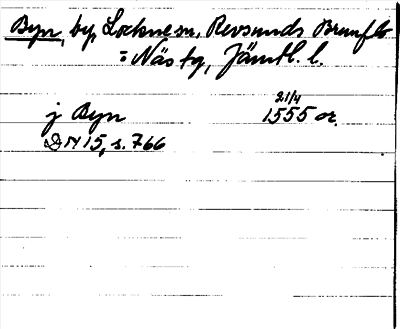 Byn, by, Lockne sn, Revsunds Brunflo
o Näs tg, Jämtl. l.
21/4
j Byn 1555 or.
DN 15, s. 766